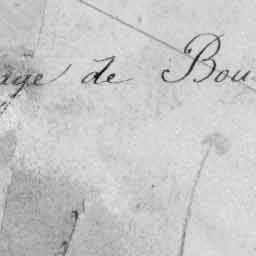 aye de Bou